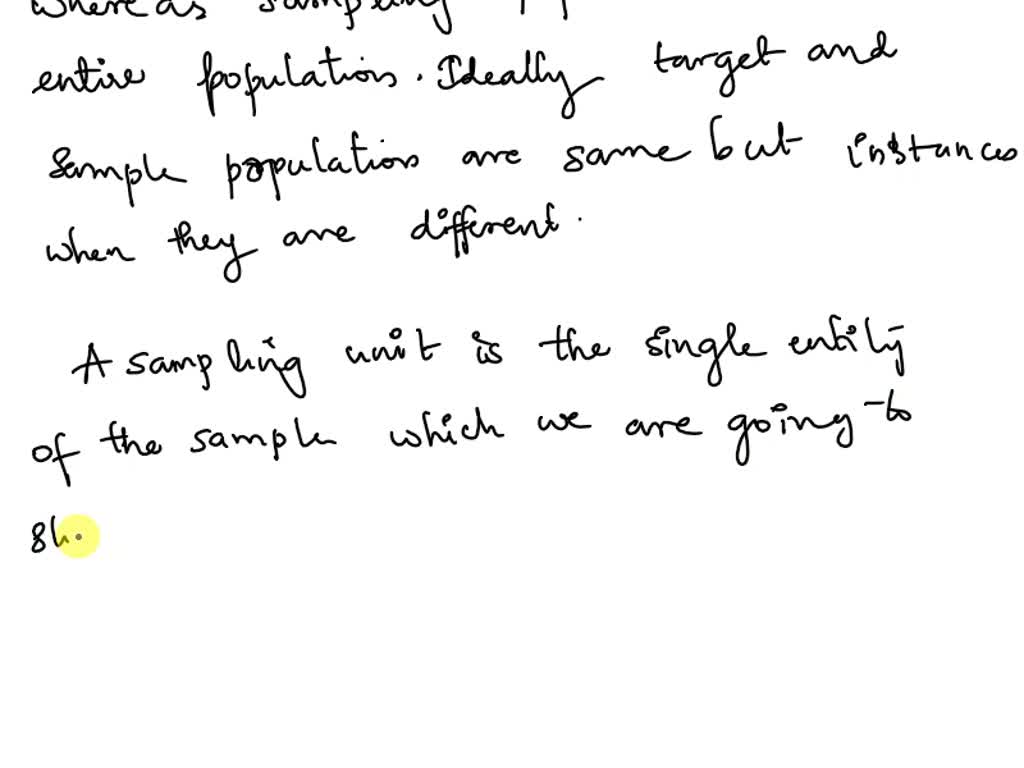 whereas sampling
entire population. Ideally target and
sample population are same but instances
when they are different.
A sampling unit is the single entity
of the sample which we are going to